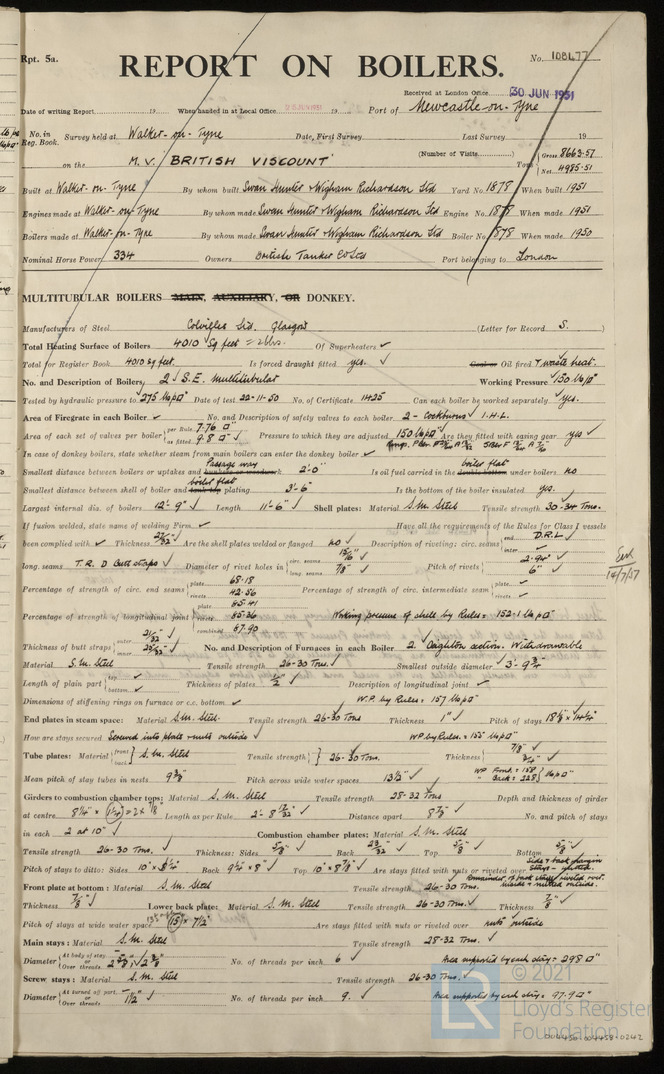 Rpt. 5a.
No. 108477
REPORT ON BOILERS.
Received at London Office 30 JUN 1951
Date of writing Report 19 When handed in at Local Office 19 Port of Newcastle-on-Tyne
No. in Reg. Book. Survey held at Walker-on-Tyne Date, First Survey Last Survey 19
on the M.V. BRITISH VISCOUNT (Number of Visits) Tons Gross 8663.57 Net 4985.51
Built at Walker-on-Tyne By whom built Swan Hunter & Wigham Richardson Ltd Yard No. 1878 When built 1951
Engines made at Walker-on-Tyne By whom made Swan Hunter & Wigham Richardson Ltd Engine No. 1878 When made 1951
Boilers made at Walker-on-Tyne By whom made Swan Hunter & Wigham Richardson Ltd Boiler No. 1878 When made 1950
Nominal Horse Power 334 Owners British Tanker Co Ltd Port belonging to London
MULTITUBULAR BOILERS MAIN, AUXILIARY, OR DONKEY.
Manufacturers of Steel Colvilles Ltd. Glasgow (Letter for Record S.)
Total Heating Surface of Boilers 4010 Sq feet = 2 blrs. Of Superheaters ✓
Total for Register Book 4010 sq feet. Is forced draught fitted yes. ✓ Coal or Oil fired & waste heat.
No. and Description of Boilers 2 ✓ S.E. Multitubular Working Pressure ✓ 150 lb/□"
Tested by hydraulic pressure to 275 lb/□" Date of test 22-11-50 No. of Certificate 1425 Can each boiler be worked separately ✓ yes.
Area of Firegrate in each Boiler ✓ No. and Description of safety valves to each boiler 2 - Cockburns ✓ I.H.L.
Area of each set of valves per boiler per Rule 7.76 □" as fitted 9.8 □" ✓ Pressure to which they are adjusted 150 lb/□" Are they fitted with easing gear yes ✓
In case of donkey boilers, state whether steam from main boilers can enter the donkey boiler ✓
Smallest distance between boilers or uptakes and bunkers or woodwork Passage way 2'-0" Is oil fuel carried in the double bottom under boilers boiler flat no
Smallest distance between shell of boiler and tank top plating boiler flat 3'-6" Is the bottom of the boiler insulated yes.
Largest internal dia. of boilers 12'-9" ✓ Length 11'-6" ✓ Shell plates: Material S.M. Steel Tensile strength 30-34 Tons.
If fusion welded, state name of welding Firm ✓ Have all the requirements of the Rules for Class I vessels
been complied with ✓ Thickness 27/32" ✓ Are the shell plates welded or flanged no ✓ Description of riveting: circ. seams end D.R.L ✓ inter ✓
long. seams T.R.D Butt straps ✓ Diameter of rivet holes in circ. seams 15/16" ✓ long. seams 7/8" ✓ Pitch of rivets 2.94" ✓ 6" ✓
Percentage of strength of circ. end seams plate 68.18 rivets 42.56 Percentage of strength of circ. intermediate seam plate ✓ rivets ✓
Percentage of strength of longitudinal joint plate 85.41 rivets 85.36 combined 87.90 Working pressure of shell by Rules = 152.1 lb/□"
Thickness of butt straps outer inner No. and Description of Furnaces in each Boiler 2. Deighton section. Withdrawable
Material S.M Steel Tensile strength 26-30 Tons. ✓ Smallest outside diameter ✓ 3'-9¾"
Length of plain part top ✓ bottom ✓ Thickness of plates ½" ✓ Description of longitudinal joint ✓
Dimensions of stiffening rings on furnace or c.c. bottom ✓ W.P. by Rules = 157 lb/□"
End plates in steam space: Material S.M. Steel. Tensile strength 26-30 Tons Thickness 1" ✓ Pitch of stays
How are stays secured Screwed into plate & nuts outside ✓ WP by Rules = 155 lb/□"
Tube plates: Material front back S.M. Steel Tensile strength 26-30 Tons. Thickness 7/8" ✓
Mean pitch of stay tubes in nests 9⅜" Pitch across wide water spaces 13½" ✓ WP Front = 158 " Back = 228 lb/□"
Girders to combustion chamber tops: Material S.M. Steel Tensile strength 28-32 Tons Depth and thickness of girder
at centre Length as Per Rule 2'-8 17/32" ✓ Distance apart 8⅞" ✓ No. and pitch of stays
in each 2 at 10" ✓ Combustion chamber plates: Material S.M. Steel
Tensile strength 26-30 Tons. ✓ Thickness: Sides 5/8" ✓ Back 23/32" ✓ Top 5/8" ✓ Bottom 5/8" ✓
Pitch of stays to ditto: Sides Back 9¼" × 8" ✓ Top 10" × 8⅞" ✓ Are stays fitted with nuts or riveted over Side & back margin stays - nutted. Remainder of back stays riveted over inside & nutted outside.
Front plate at bottom: Material S.M. Steel Tensile strength 26-30 Tons.
Thickness 7/8" ✓ Lower back plate: Material S.M. Steel Tensile strength 26-30 Tons. ✓ Thickness 7/8" ✓
Pitch of stays at wide water space 15 × 7½" Are stays fitted with nuts or riveted over nuts outside
Main stays: Material S.M. Steel Tensile strength 28-32 Tons ✓
Diameter At body of stay or Over threads No. of threads per inch 6 ✓ Area supported by each stay = 298 □"
Screw stays: Material S.M. Steel Tensile strength 26-30 Tons. ✓
Diameter At turned off part, or Over threads 1½" ✓ No. of threads per inch 9. ✓ Area supported by each stay = 97.9 □"
© 2021
Lloyd's Register
Foundation
004450-004458-0242